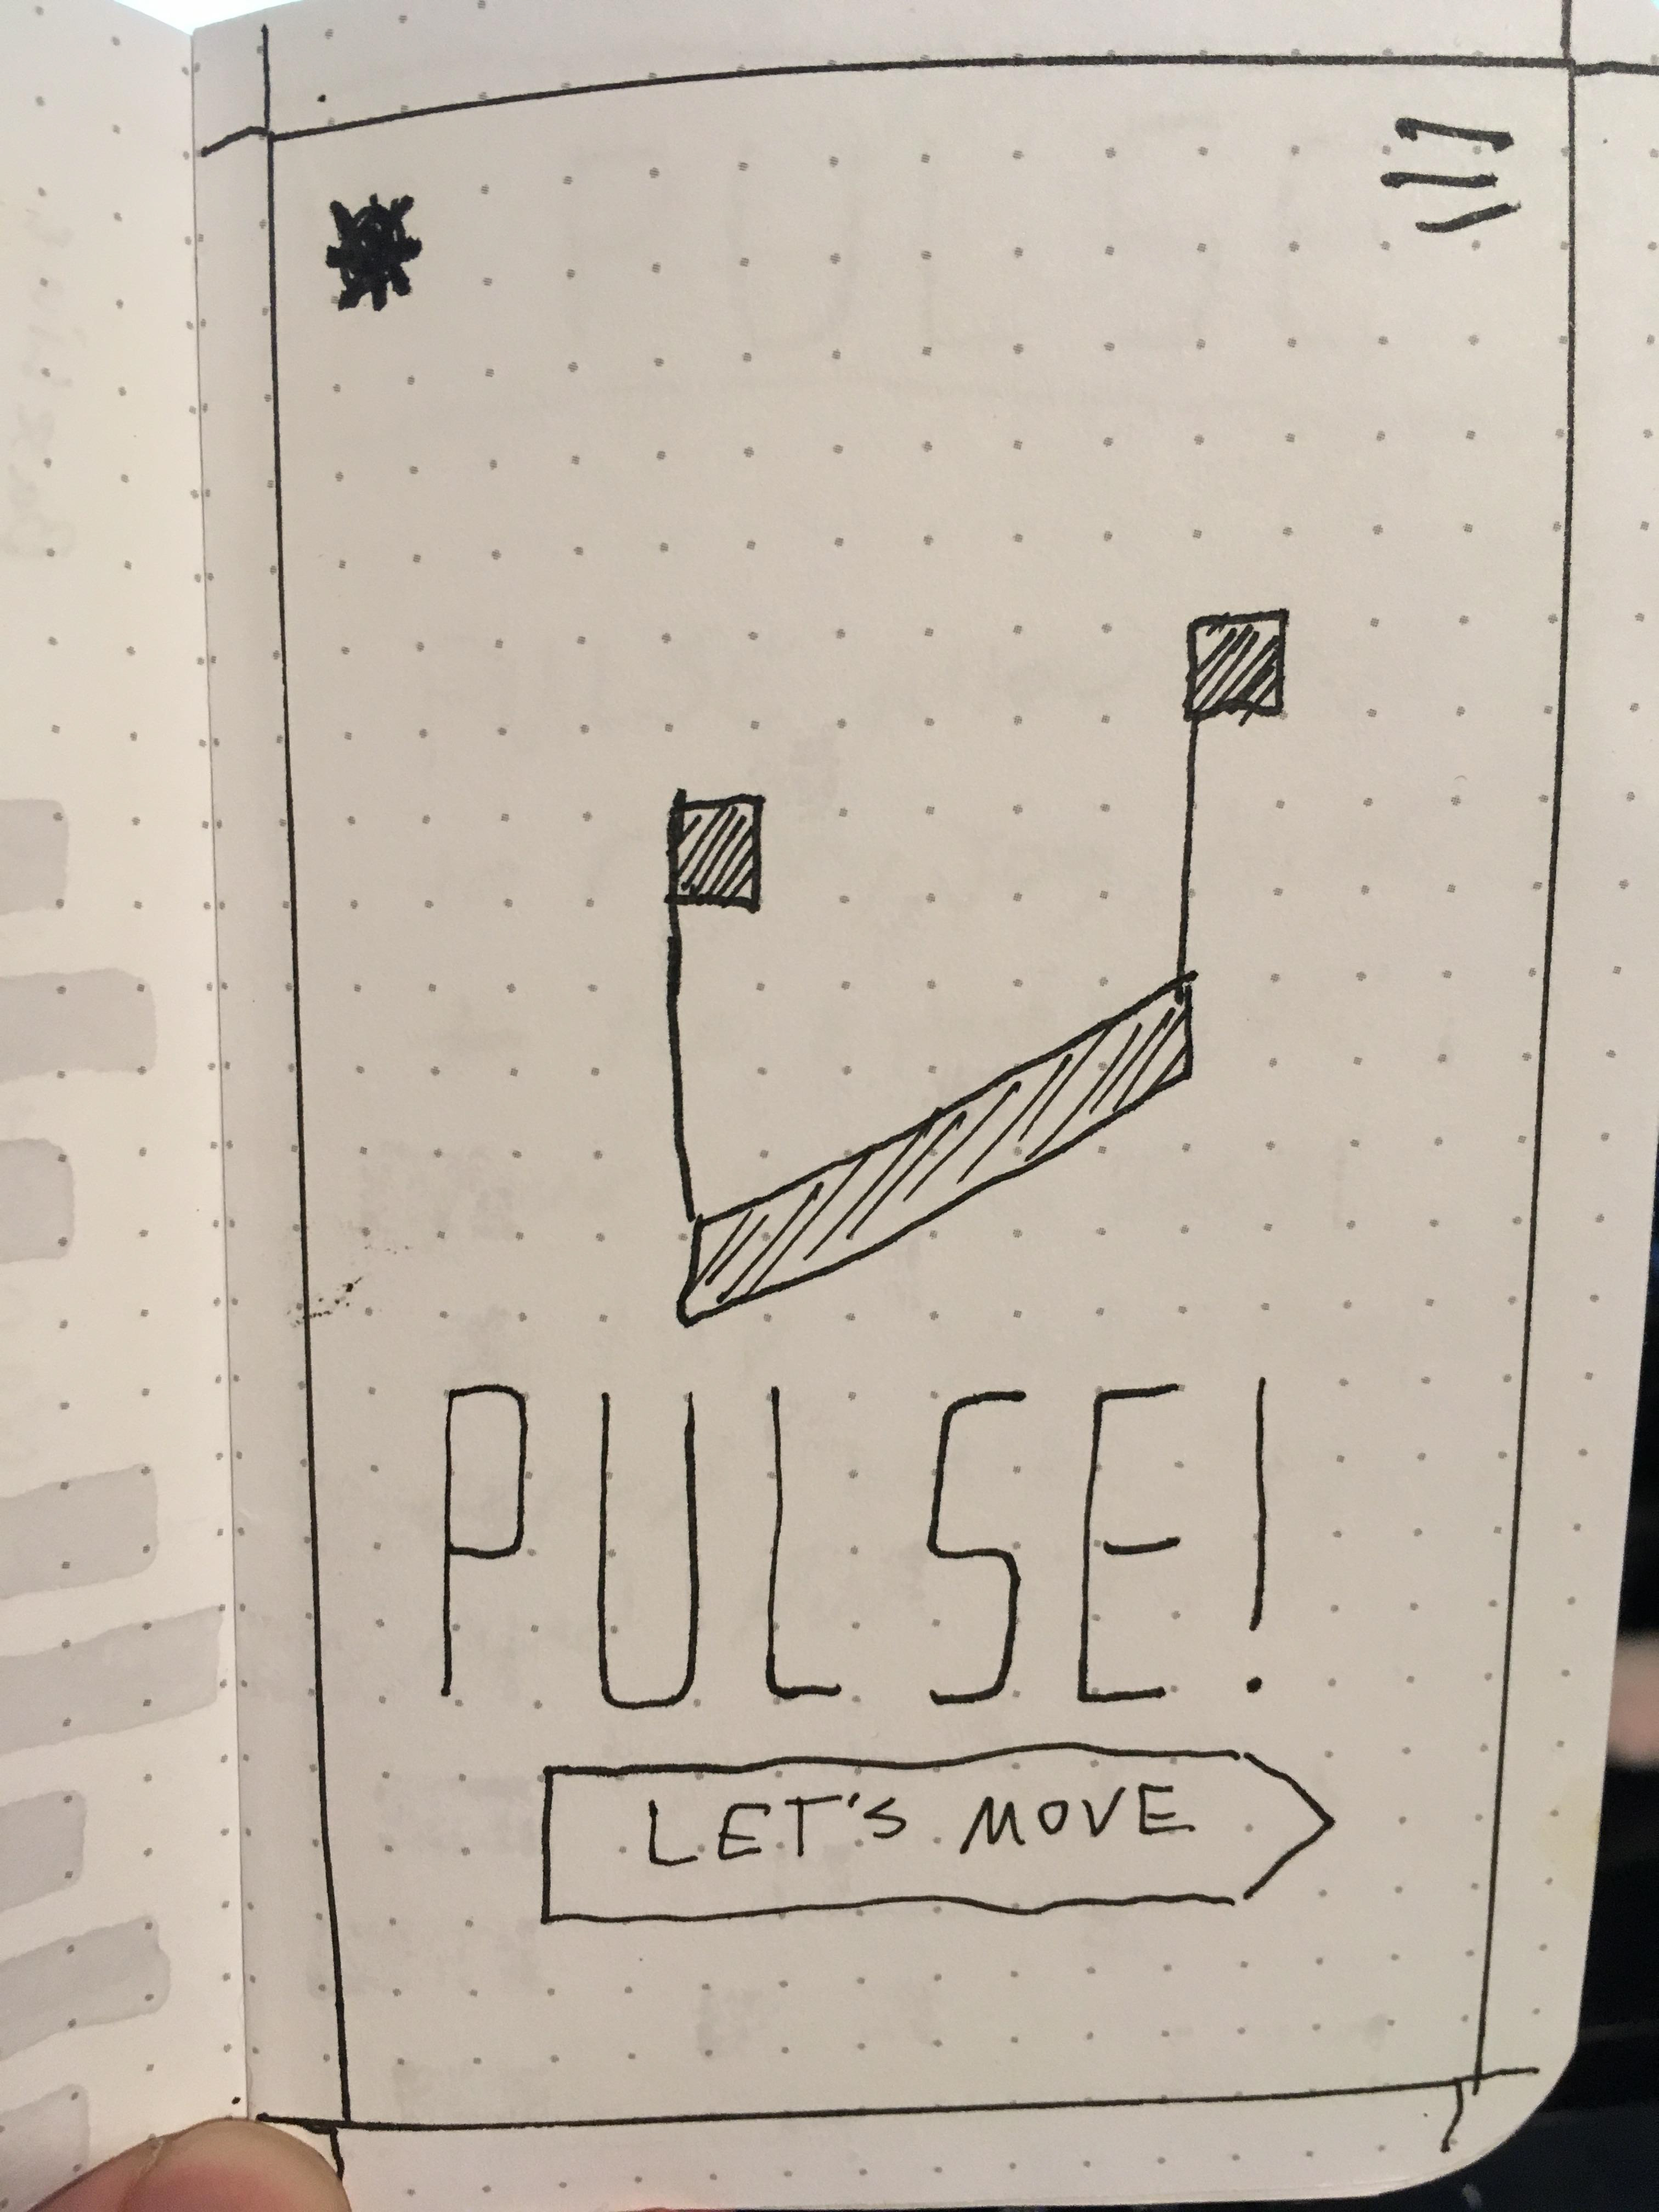 PULSE!
LET'S MOVE